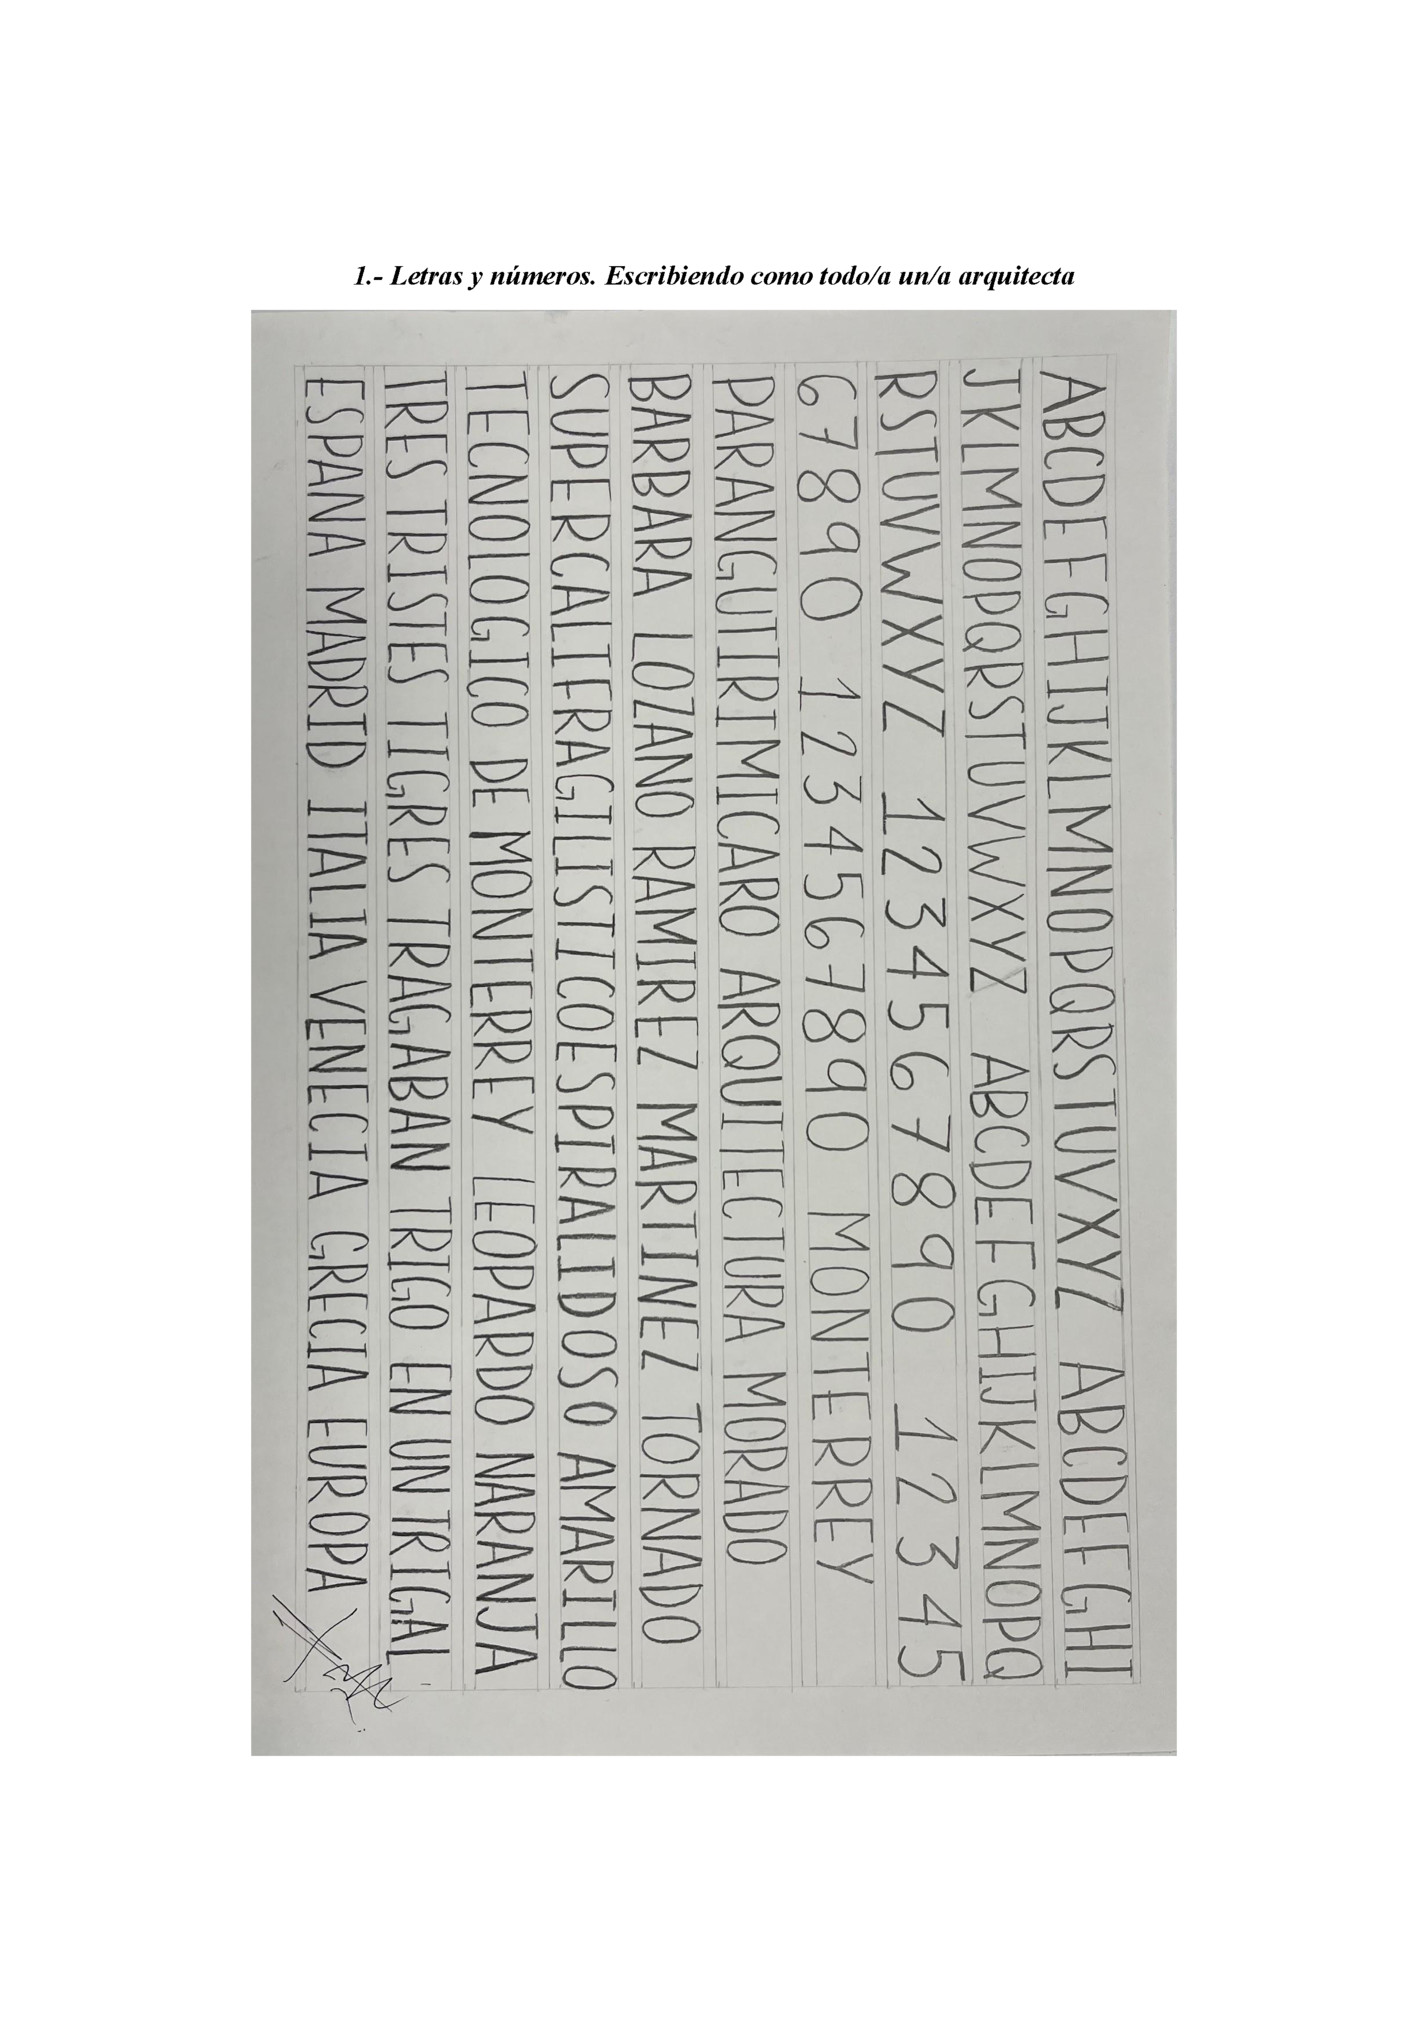 1.- Letras y números. Escribiendo como todo/a un/a arquitecta
ABCDEFGHIJKLMNOPQRSTUVXYZ ABCDEFGHI
JKLMNOPQRSTUVWXYZ ABCDEFGHIJKLMNOPQ
RSTUVWXYZ 1234567890 12345
67890 1234567890 MONTERREY
PARANGUTIRIMICARO ARQUITECTURA MORADO
BARBARA LOZANO RAMIREZ MARTINEZ TORNADO
SUPERCALIFRAGILISTICOESPIRALIDOSO AMARILLO
TECNOLOGICO DE MONTERREY LEOPARDO NARANJA
TRES TRISTES TIGRES TRAGABAN TRIGO EN UN TRIGAL
ESPANA MADRID ITALIA VENECIA GRECIA EUROPA